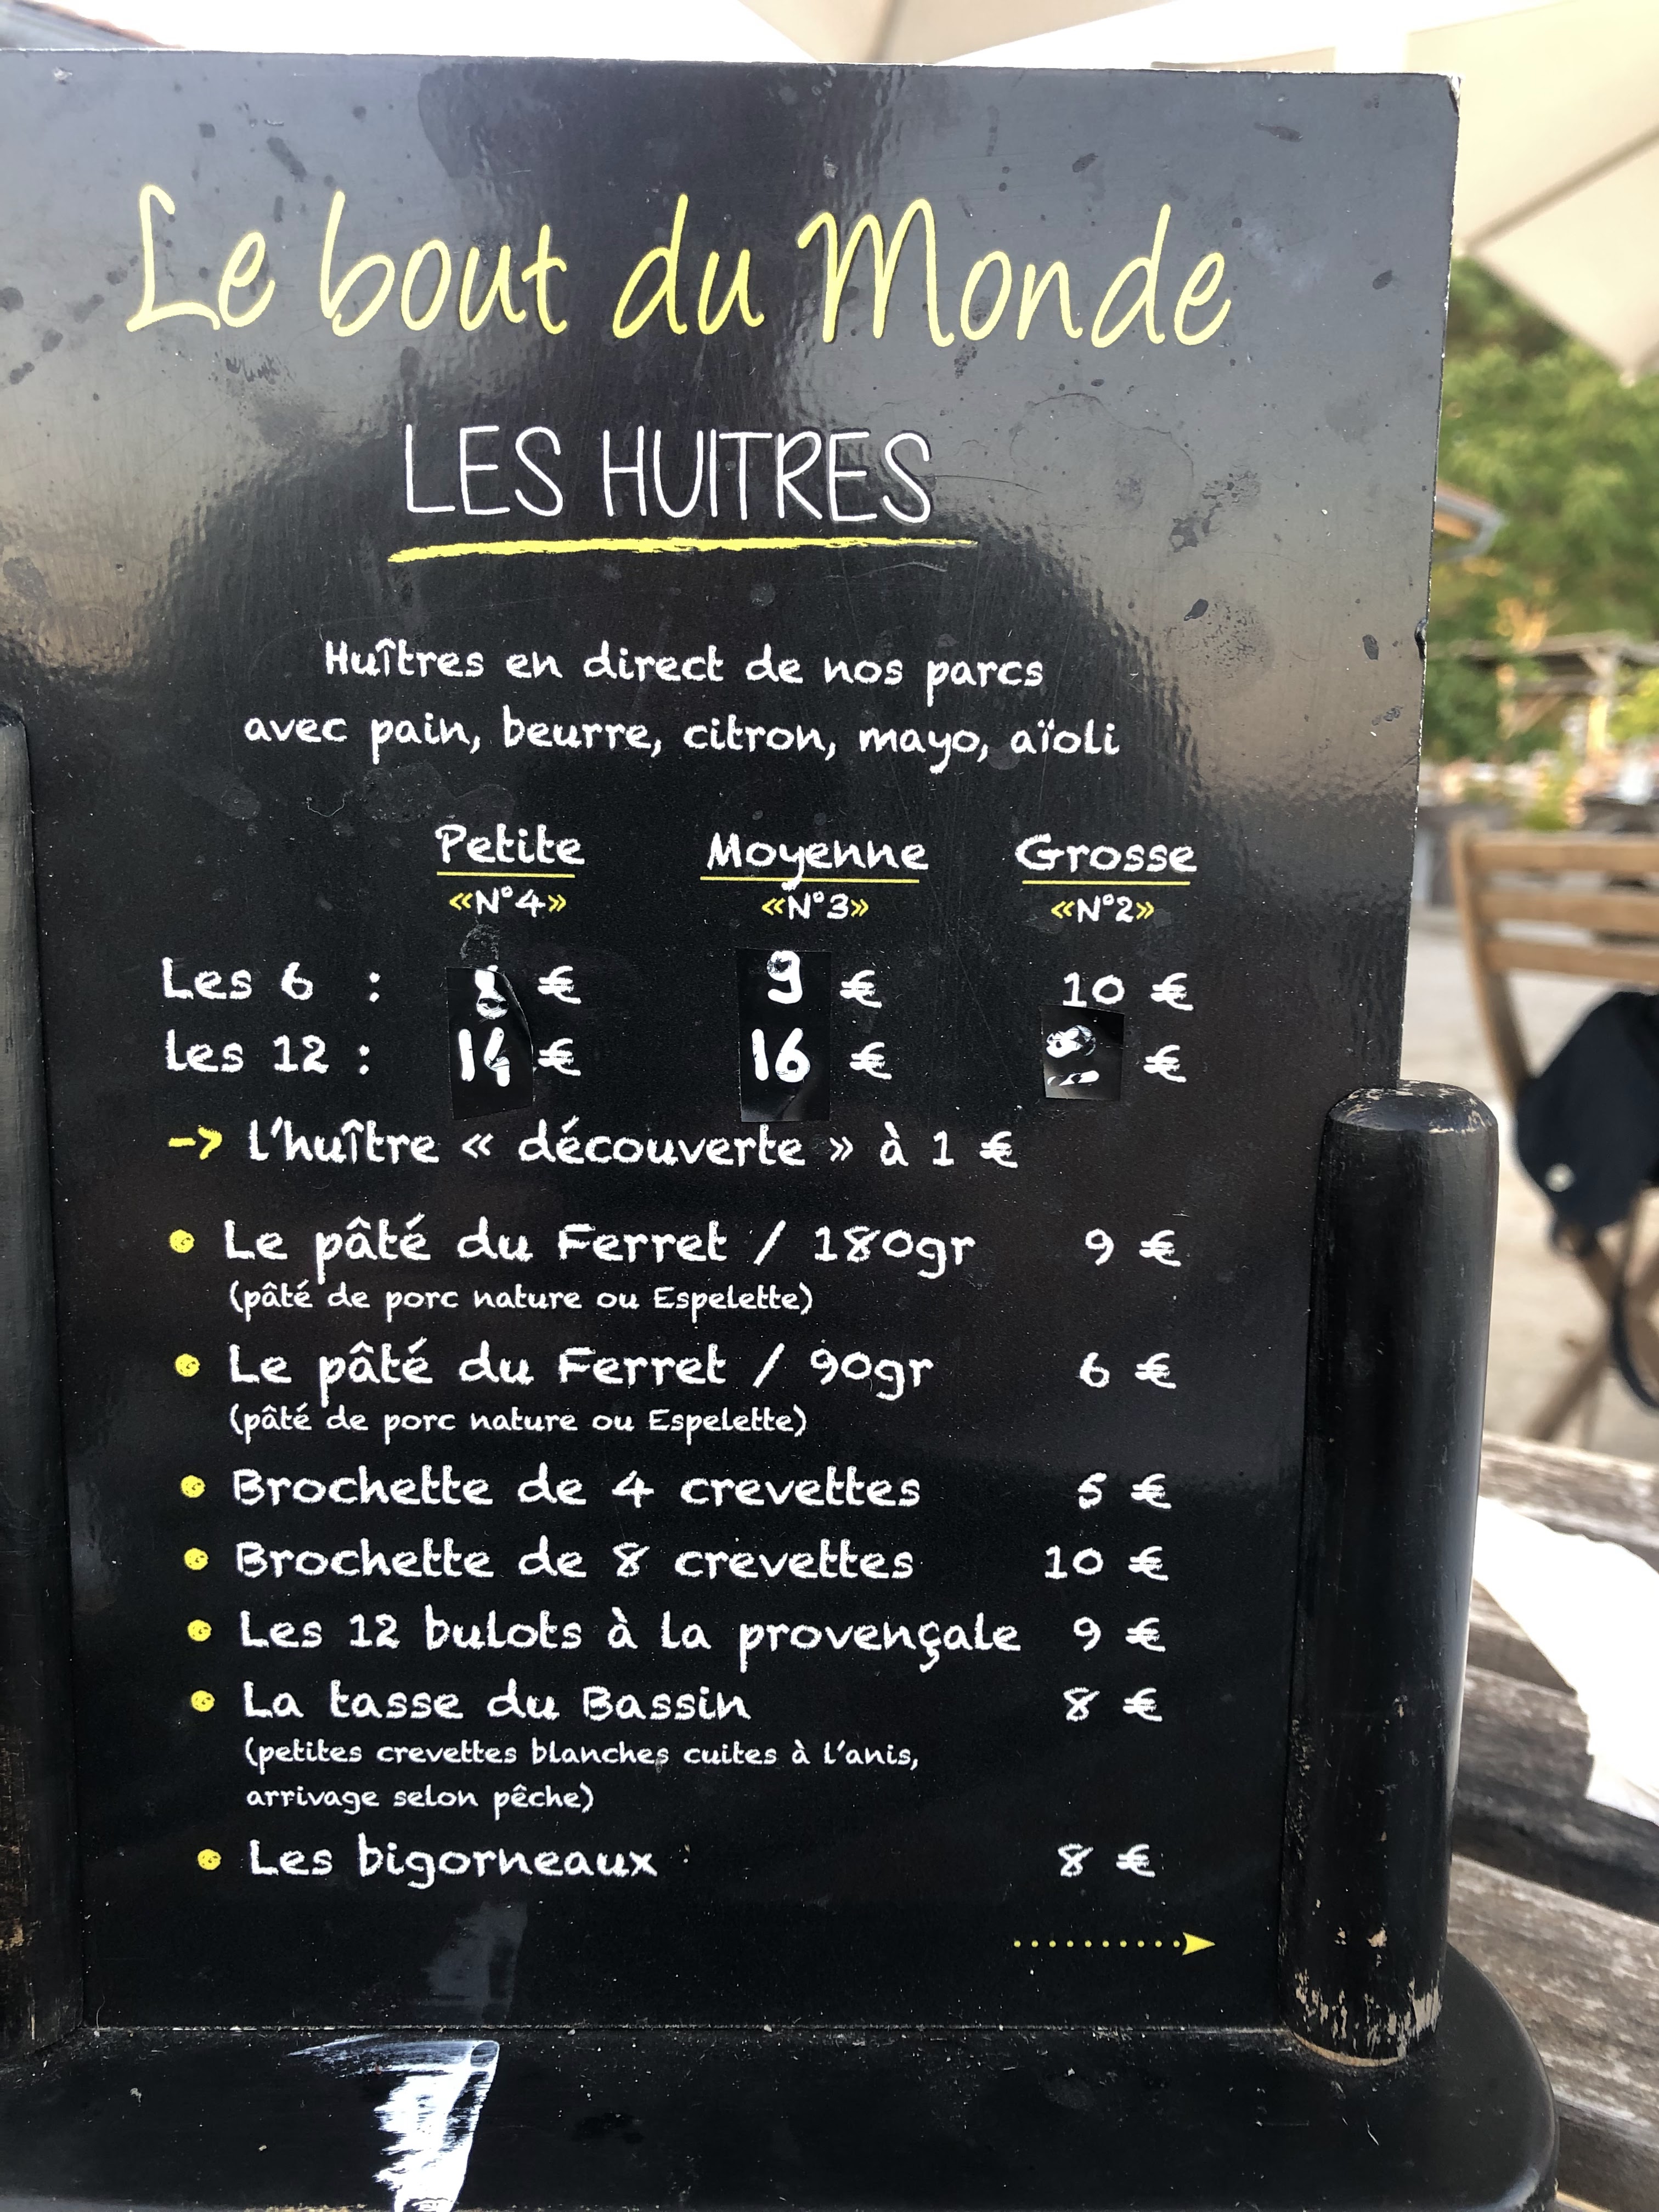 Le bout du Monde
LES HUITRES
Huîtres en direct de nos parcs
avec pain, beurre, citron, mayo, aïoli
Petite Moyenne Grosse
«N°4» «N°3» «N°2»
Les 6 : € 9 € 10 €
Les 12 : 14 € 16 € €
-> l'huître « découverte » à 1 €
Le pâté du Ferret / 180gr 9 €
(pâté de porc nature ou Espelette)
Le pâté du Ferret / 90gr 6 €
(pâté de porc nature ou Espelette)
Brochette de 4 crevettes 5 €
Brochette de 8 crevettes 10 €
Les 12 bulots à la provençale 9 €
La tasse du Bassin 8 €
(petites crevettes blanches cuites à l'anis,
arrivage selon pêche)
Les bigorneaux 8 €